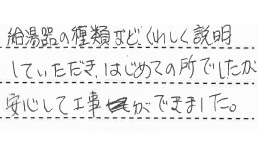 給湯器の種類などくわしく説明
していただき、はじめての所でしたが
安心して工事ができました。